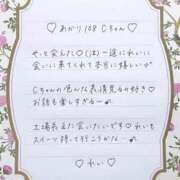 ♡ あかり 108 Cちゃん ♡
やっと会えた♡(泣) 一緒にれいに
会いに来てくれて本当に嬉しい♡
Cちゃんの色んな表情見るの好き♡
お話も楽しすぎる〜
また会いたいです♡れいも
スイーツ持って行こうかな…
♡ れい ♡